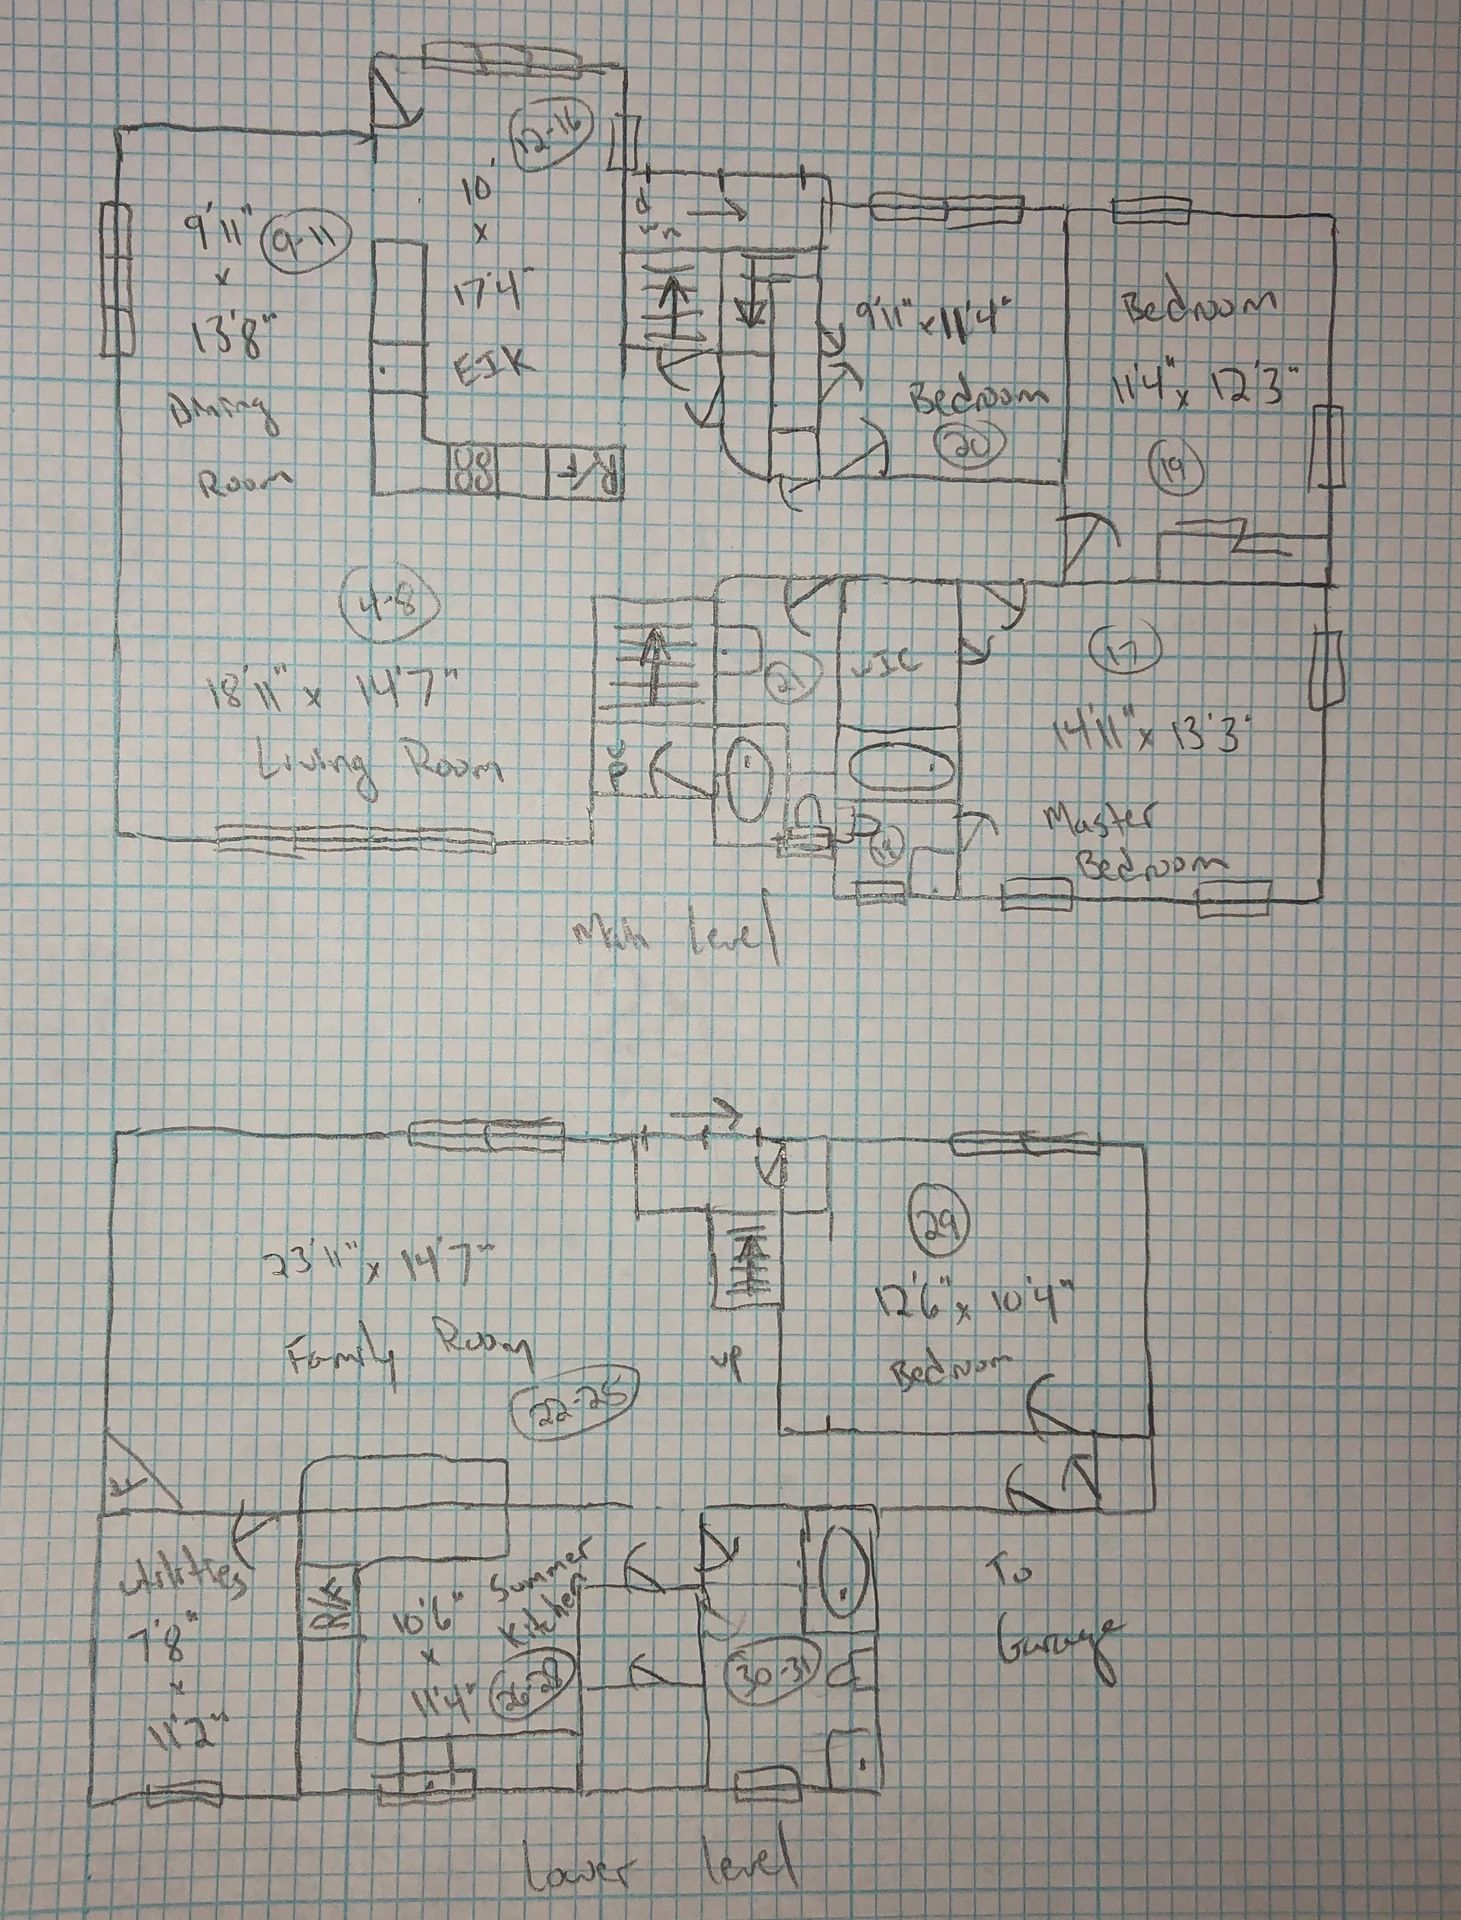 12-16
10'
x
17'4"
EIK
9'11"
9-11
x
13'8"
Dining
Room
R/F
dwn
9'11" x 11'4"
Bedroom
20
Bedroom
11'4" x 12'3"
19
4-8
18'11" x 14'7"
Living Room
up
21
WIC
17
14'11" x 13'3"
Master
Bedroom
Main Level
23'11" x 14'7"
Family Room
22-25
up
29
12'6" x 10'4"
Bedroom
Utilities
7'8"
x
11'2"
R/F
Summer
Kitchen
10'6"
x
11'4"
26-28
30-31
To
Garage
Lower level